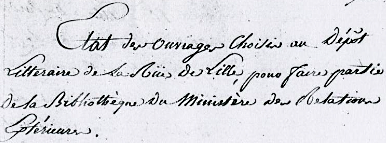 Etat des Ouvrages Choisis au Dépôt
Litteraire de La Rüe de Lille, pour faire partie
de la Bibliothèque du Ministère des Relations
Extérieures.